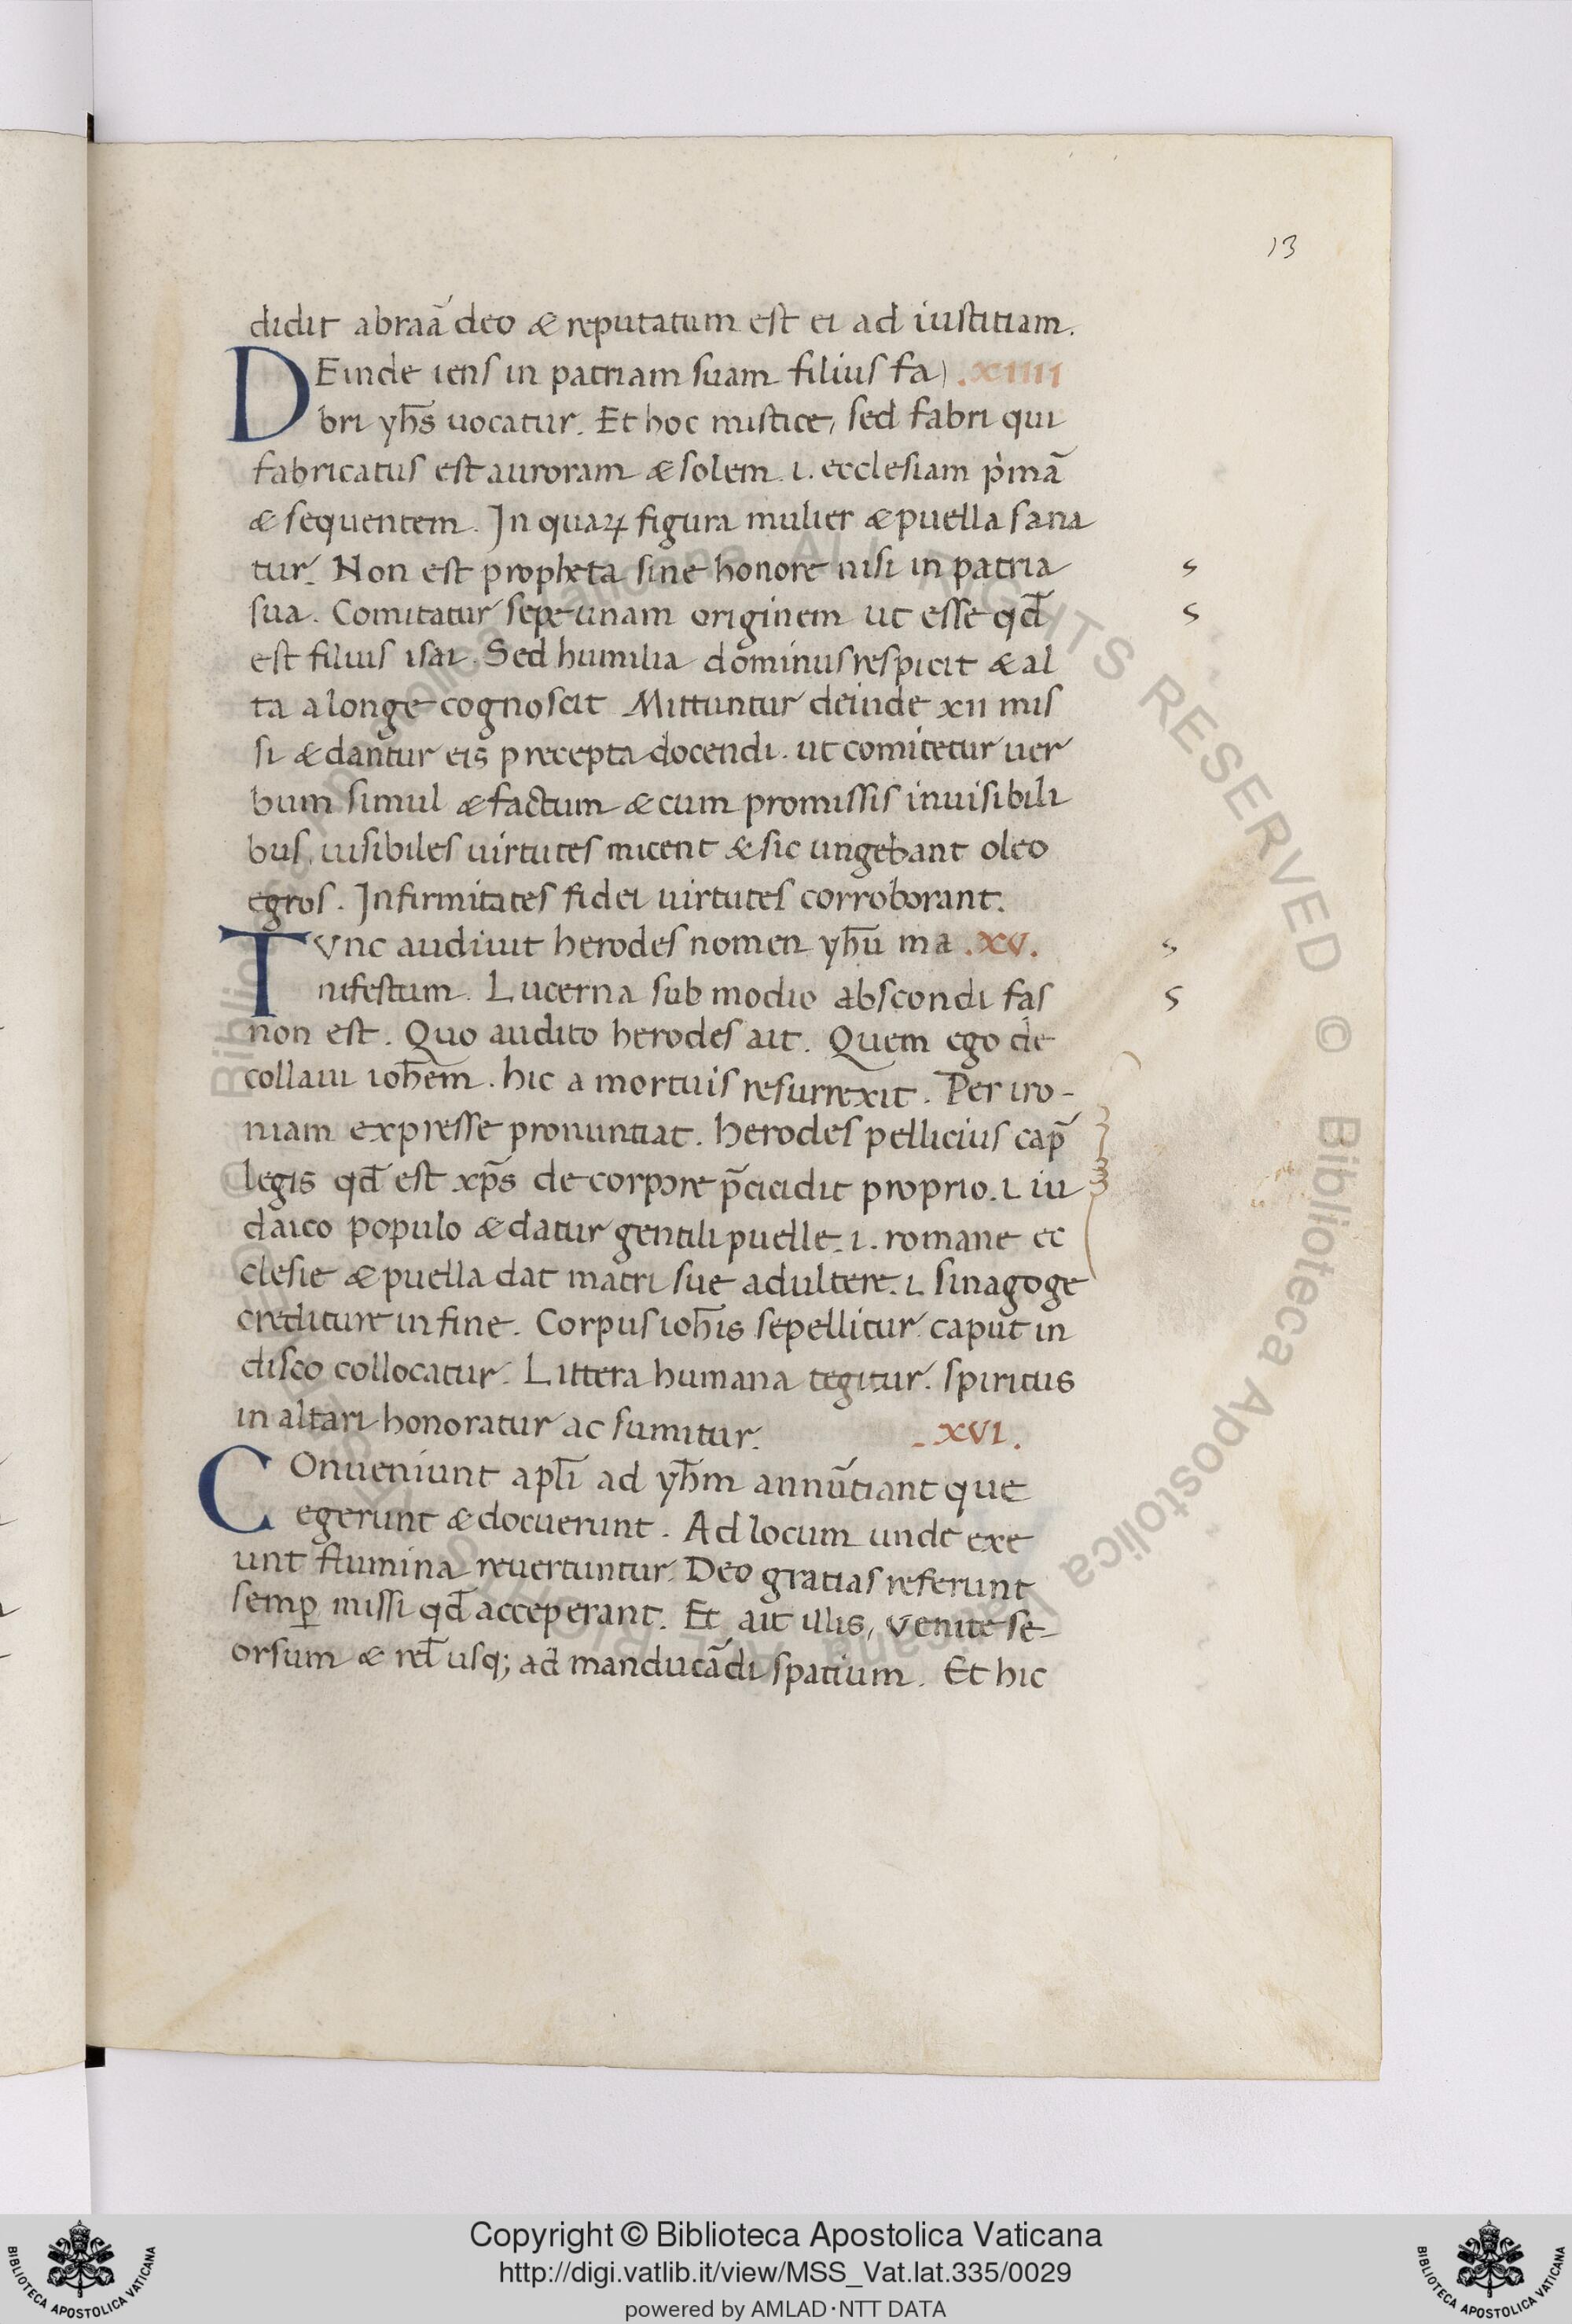 13
didit abraā deo & reputatum est ei ad iustitiam.
DEinde iens in patriam suam filius fa) .XIIII
bri yh̄s uocatur. Et hoc mistice, sed fabri qui
fabricatus est auroram & solem .i. ecclesiam pͥmā
& sequentem. In quaꝝ figura mulier & puella sana
tur. Non est propheta sine honore nisi in patria
sua. Comitatur sepe unam originem ut esse qđ
est filius isai. Sed humilia dominus respicit & al
ta a longe cognoscit Mittuntur deinde xii mis
si & dantur eis precepta docendi. ut comitetur uer
bum simul & factum & cum promissis inuisibili
bus, uisibiles uirtutes micent & sic ungebant oleo
egros. Infirmitates fidei uirtutes corroborant.
TVnc audiuit herodes nomen yhū ma .XV.
nifestum. Lucerna sub modio abscondi fas
non est. Quo audito herodes ait. Quem ego de
collaui ioh̄em. hic a mortuis resurrexit. Per iro-
niam expresse pronuntiat. herodes pellicius cap̄
legis qđ est xp̄s de corpore p̄cicidit proprio .i. iu
daico populo & datur gentili puelle .i. romane ec
clesie & puella dat matri sue adultere .i. sinagoge
crediture in fine. Corpus ioh̄is sepellitur caput in
disco collocatur. Littera humana tegitur. spiritus
in altari honoratur ac sumitur. .XVI.
COnueniunt apl̄i ad yh̄m annūtiant que
egerunt & docuerunt. Ad locum unde exe
unt flumina reuertuntur. Deo gratias referunt
semꝑ missi qđ acceperant. Et ait illis, venite se-
orsum & rel̄ usq; ad manducādi spatium. Et hic
s
s
s
s
Copyright © Biblioteca Apostolica Vaticana
http://digi.vatlib.it/view/MSS_Vat.lat.335/0029
powered by AMLAD·NTT DATA
BIBLIOTECA APOSTOLICA VATICANA
BIBLIOTECA APOSTOLICA VATICANA
© Biblioteca Apostolica Vaticana ALL RIGHTS RESERVED
© Biblioteca Apostolica Vaticana ALL RIGHTS RESERVED